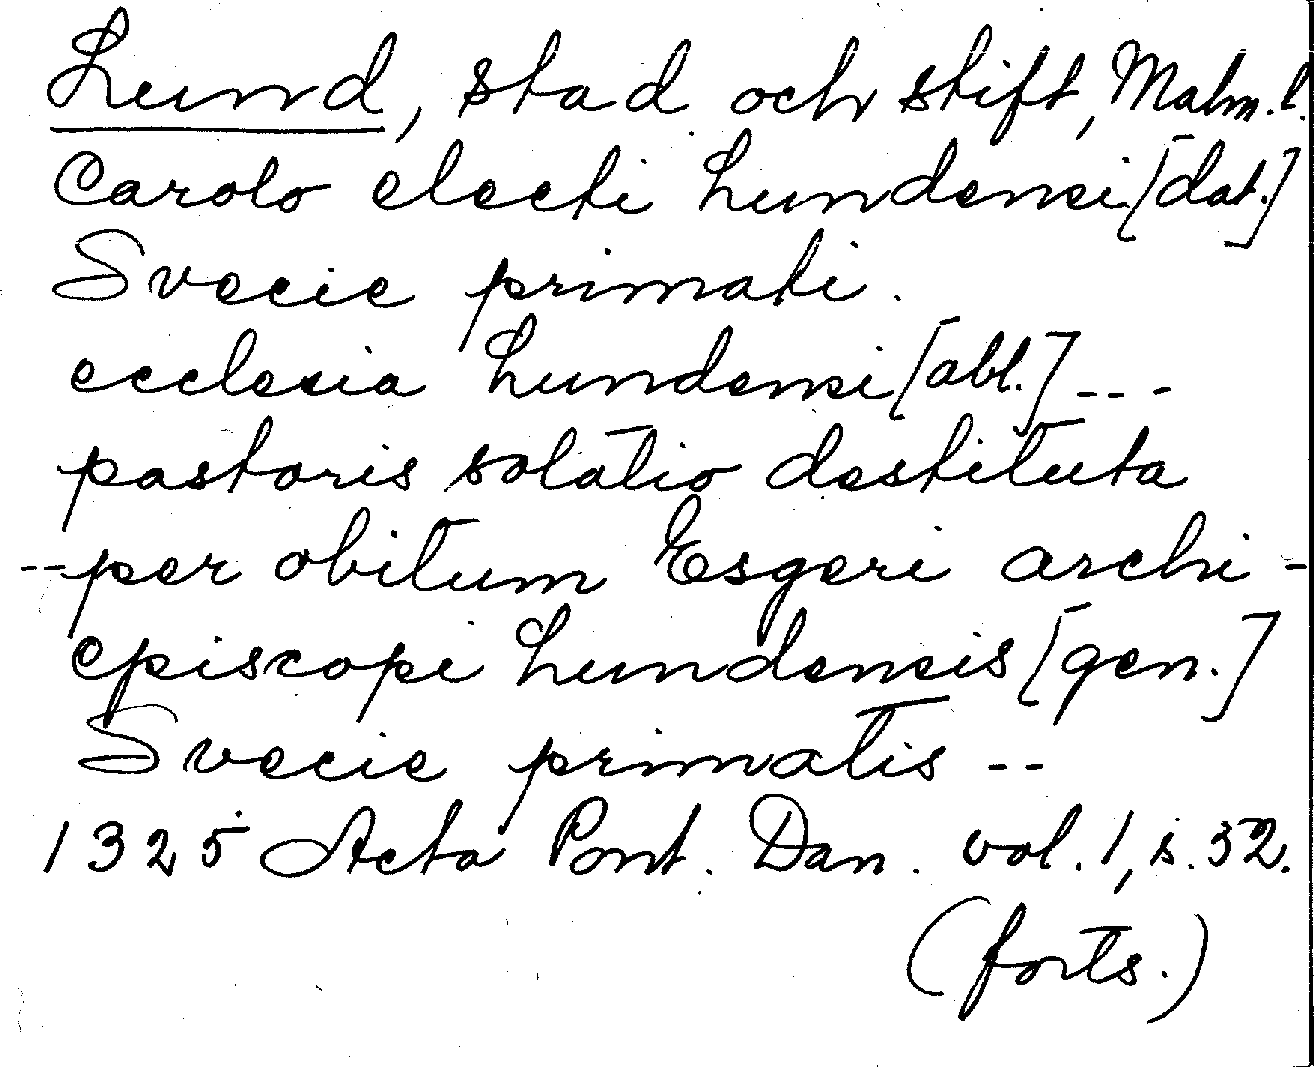 Lund, stad och stift, Malm. l.
Carolo electi Lundensi [dat.]
Svecie primati.
ecclesia Lundensi [abl.] ---
pastoris solatio destituta
-- per obitum Esgeri archi-
episcopi Lundensis [gen.]
Svecie primatis --
1325 Acta Pont. Dan. vol. 1, s. 32.
(forts.)